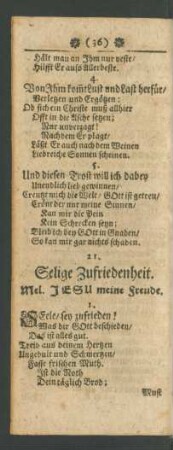 (36)
Hält man an Ihm nur veste/
Hilfft Er aufs Allerbeste.
4.
Von Ihm kom̃t Lust und Last herfür/
Verletzen und Ergötzen:
Ob sich ein Christe muß allhier
Offt in die Asche setzen;
Nur unverzagt!
Nachdem Er plagt/
Läßt Er auch nach dem Weinen
Liebreiche Sonnen scheinen.
5.
Und diesen Trost will ich dabey
Unendlich lieb gewinnen/
Creutzt mich die Welt/ GOtt ist getreu/
Crönt der nur meine Sinnen/
Kan mir die Pein
Kein Schrecken seyn:
Bleib ich bey GOtt in Gnaden/
So kan mir gar nichts schaden.
21.
Selige Zufriedenheit.
Mel. JESU meine Freude.
1.
SEele/ sey zufrieden!
Was dir GOtt beschieden/
Das ist alles gut.
Treib aus deinem Hertzen
Ungedult und Schmertzen/
Fasse frischen Muth.
Ist die Noth
Dein täglich Brod;
Must